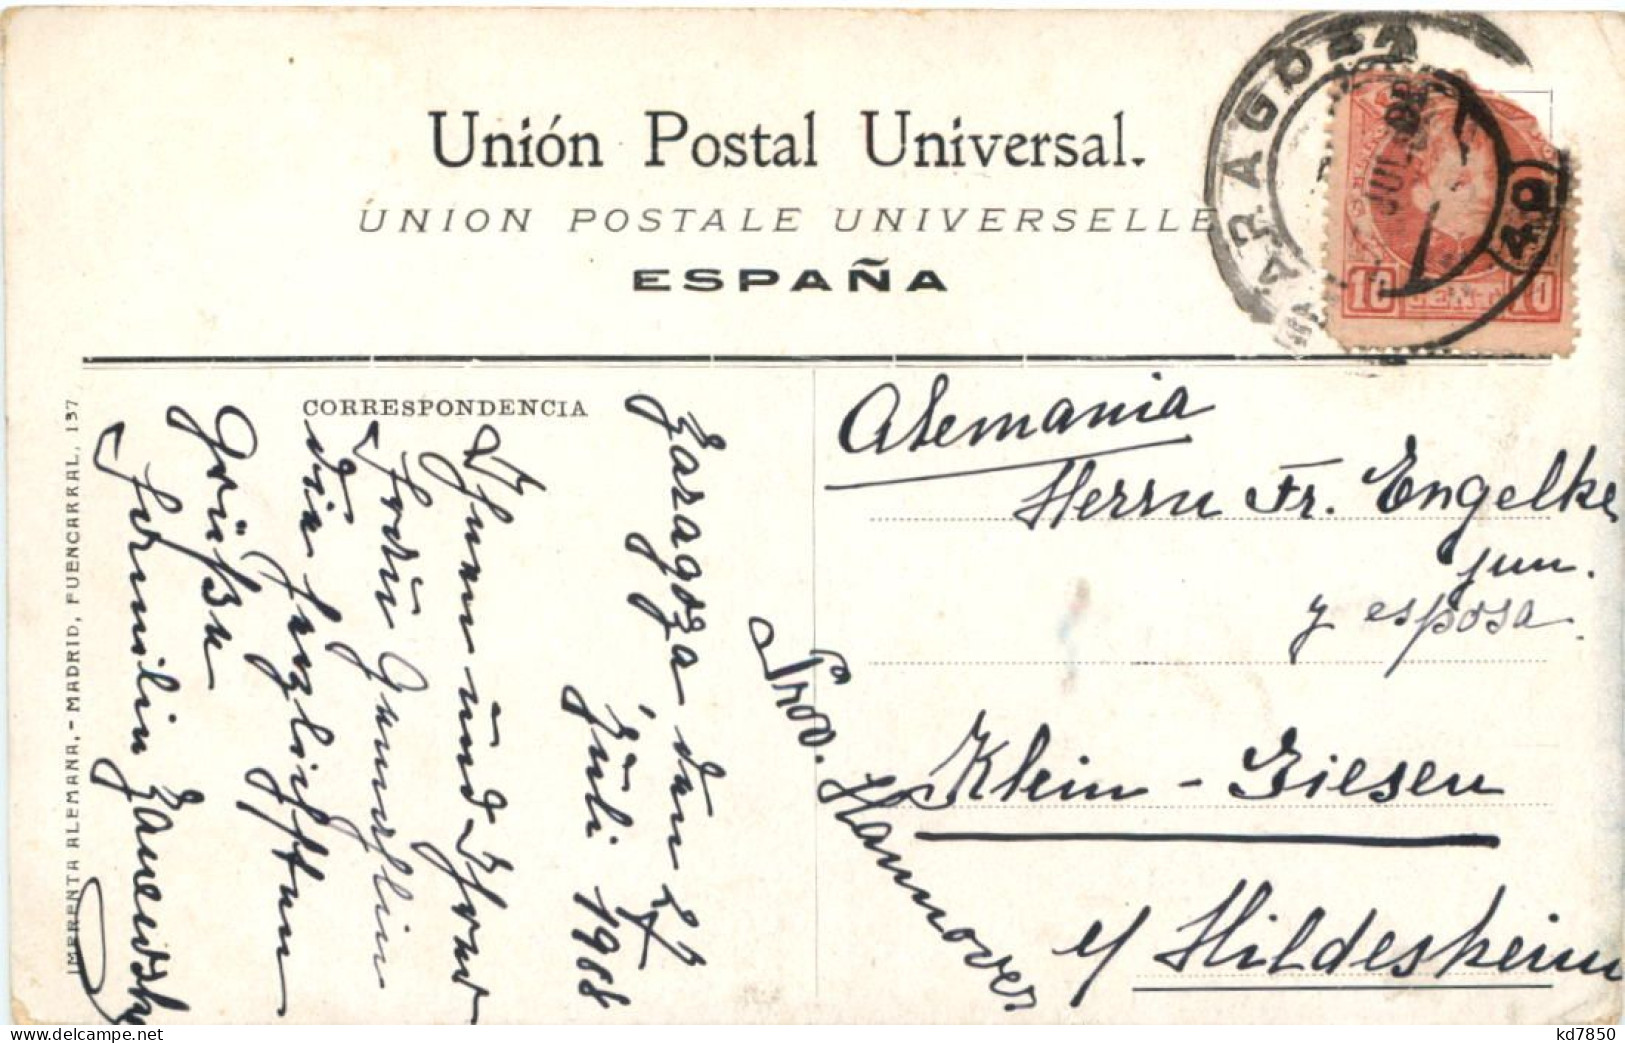 Unión Postal Universal.
UNION POSTALE UNIVERSELLE
ESPAÑA
ZARAGOZA
JUL
10 CENT 10
CORRESPONDENCIA
Zaragoza den
Juli 1908
Ihnen und Ihrer
Frau Gemahlin
die herzlichsten
Grüße
Familie
Alemania
Herrn Fr. Engelke
jun.
y esposa.
Klein-Giesen
b/ Hildesheim
Prov. Hannover
IMPRENTA ALEMANA.-MADRID, FUENCARRAL, 137
kd7850